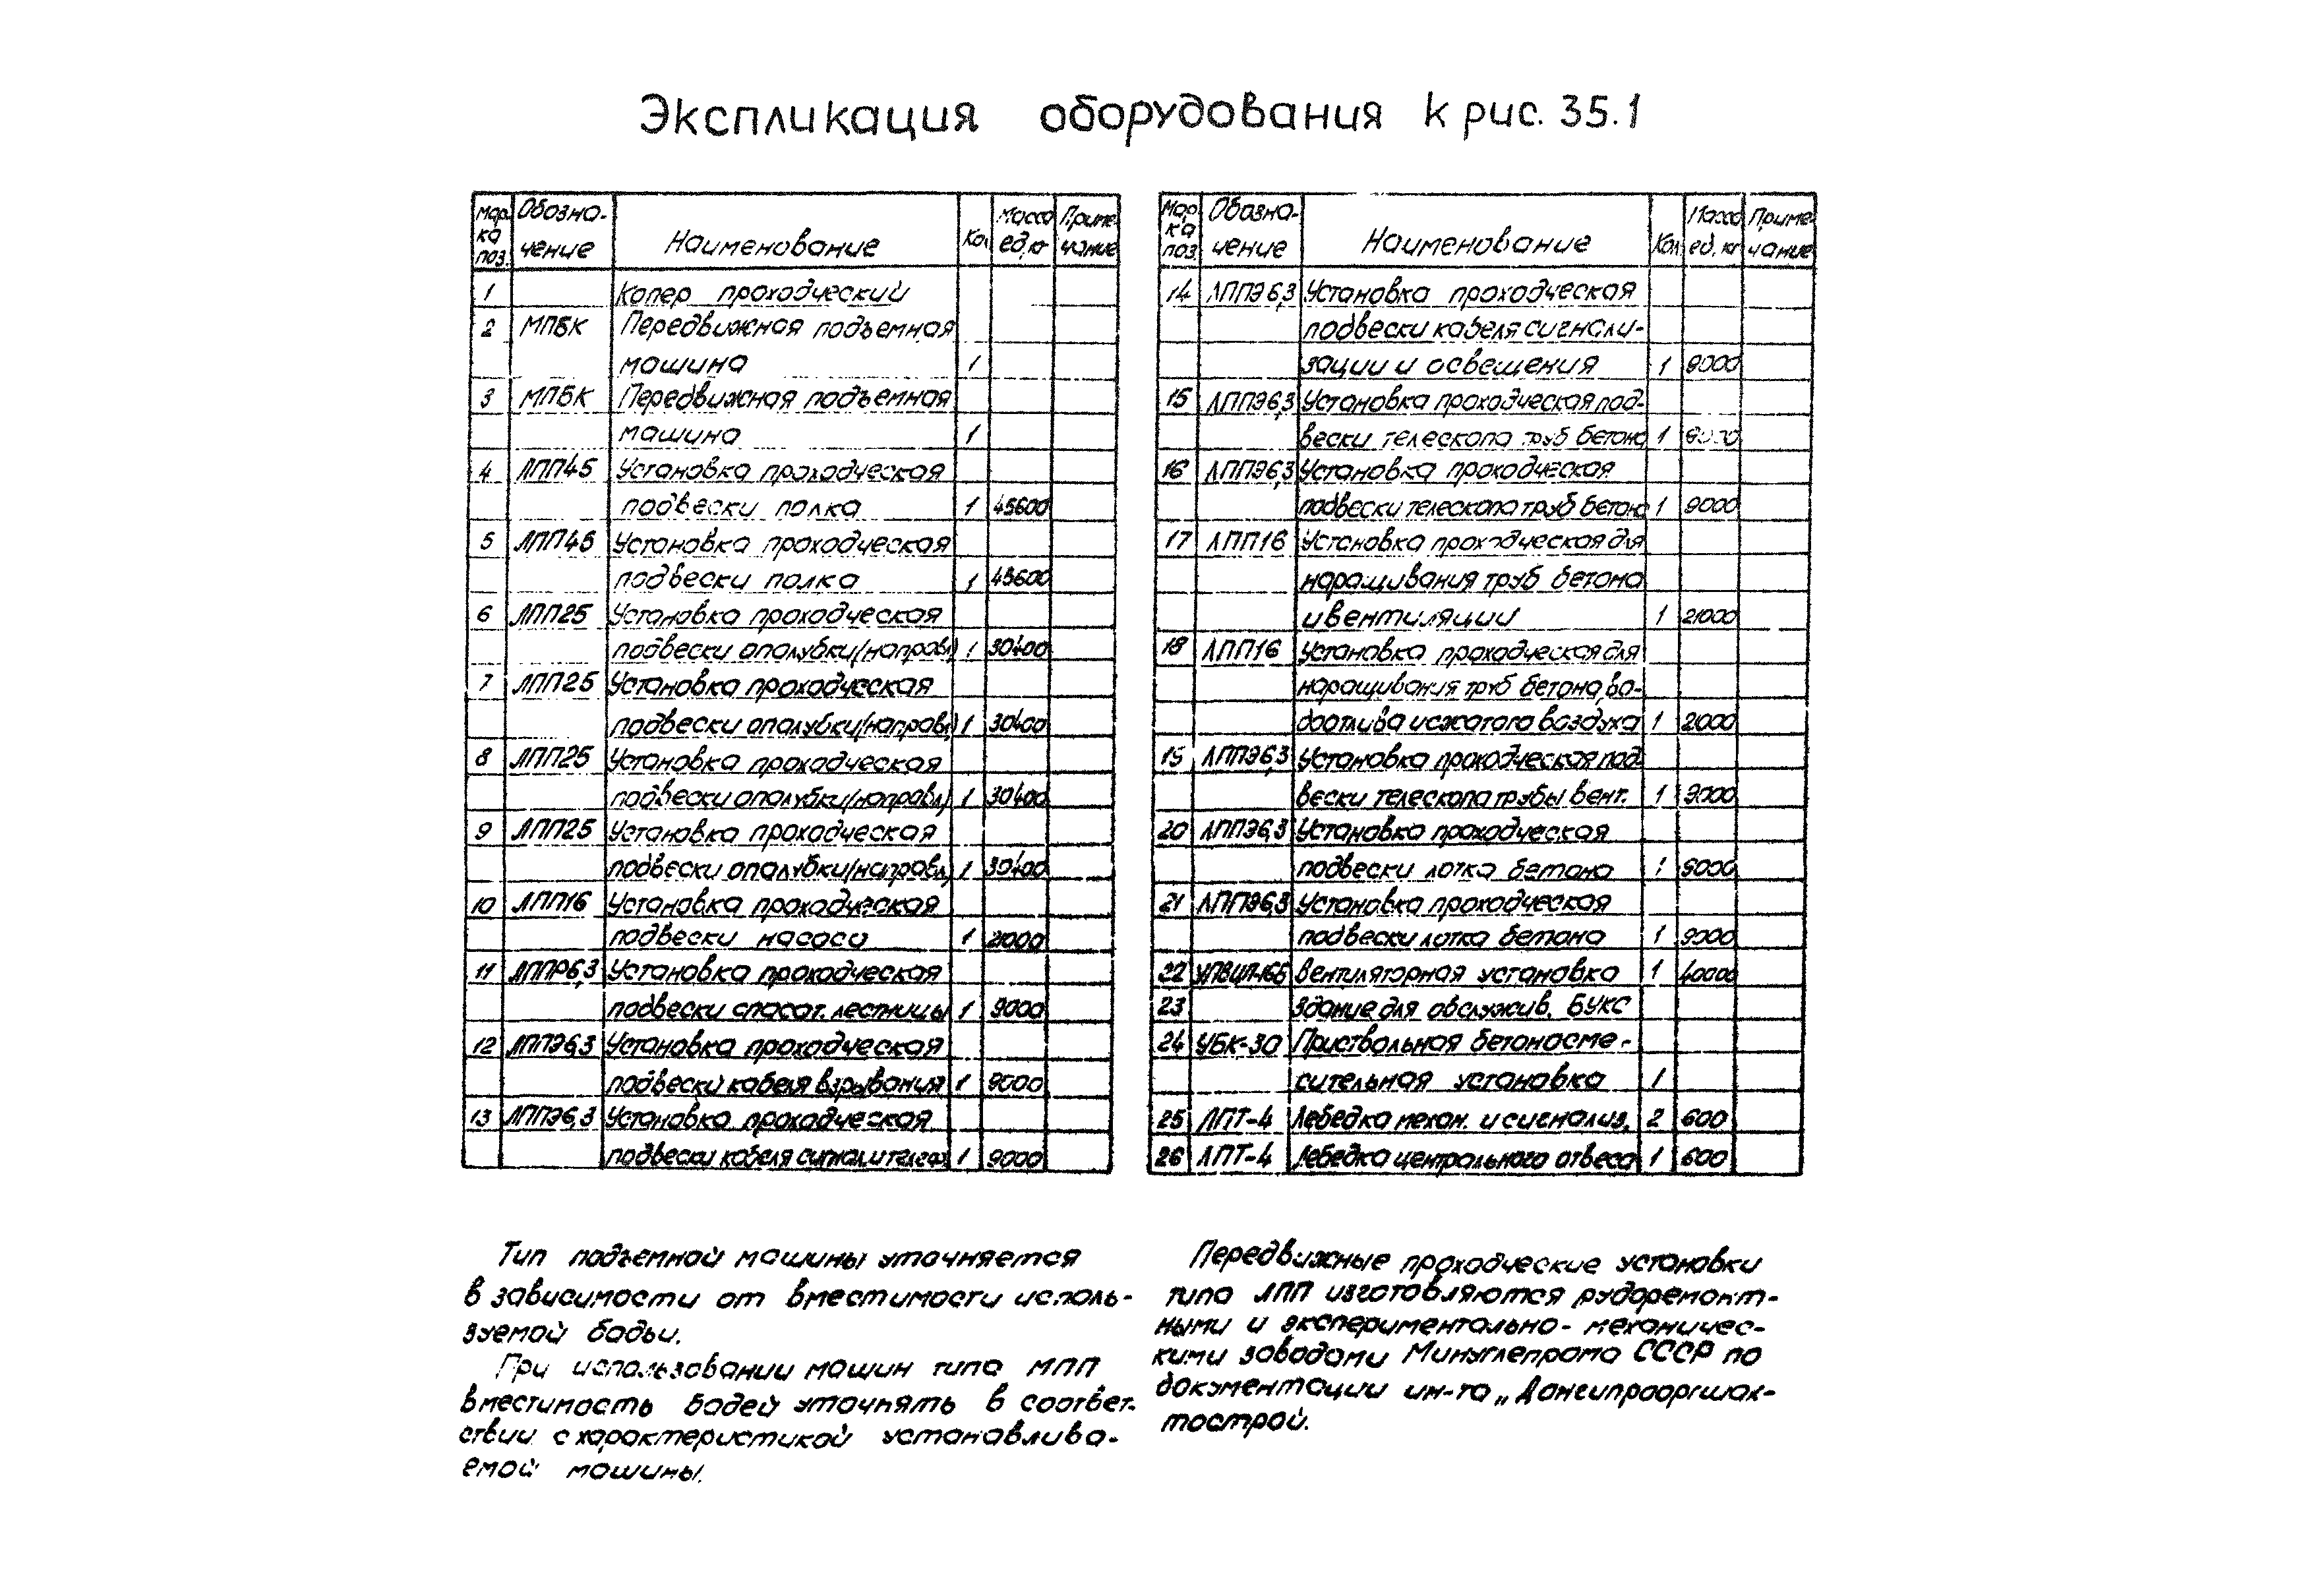 Экспликация оборудования к рис. 35.1
Мар- Обозна- Масса Приме-
ка Наименование Кол
поз. чение ед,кг чание
1 Копер проходческий
2 МПБК Передвижная подъемная
машина 1
3 МПБК Передвижная подъемная
машина 1
4 ЛПП45 Установка проходческая
подвески полка 1 45600
5 ЛПП45 Установка проходческая
подвески полка 1 45600
6 ЛПП25 Установка проходческая
подвески опалубки/направл) 1 30400
7 ЛПП25 Установка проходческая
подвески опалубки/направл) 1 30400
8 ЛПП25 Установка проходческая
подвески опалубки/направл) 1 30400
9 ЛПП25 Установка проходческая
подвески опалубки/направл) 1 30400
10 ЛПП16 Установка проходческая
подвески насоса 1 21000
11 ЛППР6,3 Установка проходческая
подвески спасат. лестницы 1 9000
12 ЛППЭ6,3 Установка проходческая
подвески кабеля взрывания 1 9000
13 ЛППЭ6,3 Установка проходческая
подвески кабеля сигнал.и телеф 1 9000
Мар- Обозна- Масса Приме-
ка Наименование Кол
поз. чение ед, кг чание
14 ЛППЭ6,3 Установка проходческая
подвески кабеля сигнали-
зации и освещения 1 9000
15 ЛППЭ6,3 Установка проходческая под-
вески телескопа труб бетона 1 9000
16 ЛППЭ6,3 Установка проходческая
подвески телескопа труб бетона 1 9000
17 ЛПП16 Установка проходческая для
наращивания труб бетона
и вентиляции 1 21000
18 ЛПП16 Установка проходческая для
наращивания труб бетона, во-
доотлива и сжатого воздуха 1 2000
19 ЛППЭ6,3 Установка проходческая под-
вески телескопа трубы вент. 1 9000
20 ЛППЭ6,3 Установка проходческая
подвески лотка бетона 1 9000
21 ЛППЭ6,3 Установка проходческая
подвески лотка бетона 1 9000
22 УПВЦП-16Б Вентиляторная установка 1 40000
23 Здание для обслужив. БУКС
24 УБК-30 Приствольная бетоносме-
сительная установка 1
25 ЛПТ-4 Лебедка механ. и сигнализ. 2 600
26 ЛПТ-4 Лебедка центрального отвеса 1 600
Тип подъемной машины уточняется
в зависимости от вместимости исполь-
зуемой бадьи.
При использовании машин типа МПП
вместимость бадей уточнять в соответ-
ствии с характеристикой устанавлива-
емой машины.
Передвижные проходческие установки
типа ЛПП изготовляются рудоремонт-
ными и экспериментально- механичес-
кими заводами Минуглепрома СССР по
документации ин-та „Донгипрооргшах-
тострой.